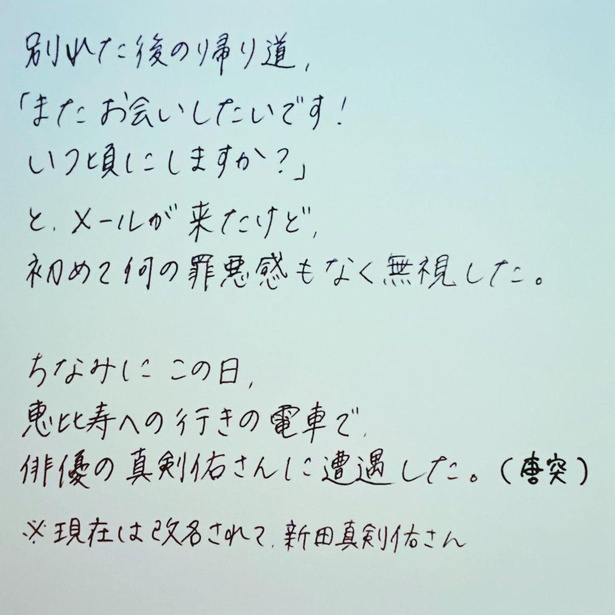 別れた後の帰り道,
「またお会いしたいです!
いつ頃にしますか?」
と,メールが来たけど,
初めて何の罪悪感もなく無視した。
ちなみにこの日,
恵比寿への行きの電車で,
俳優の真剣佑さんに遭遇した。(唐突)
※現在は改名されて,新田真剣佑さん